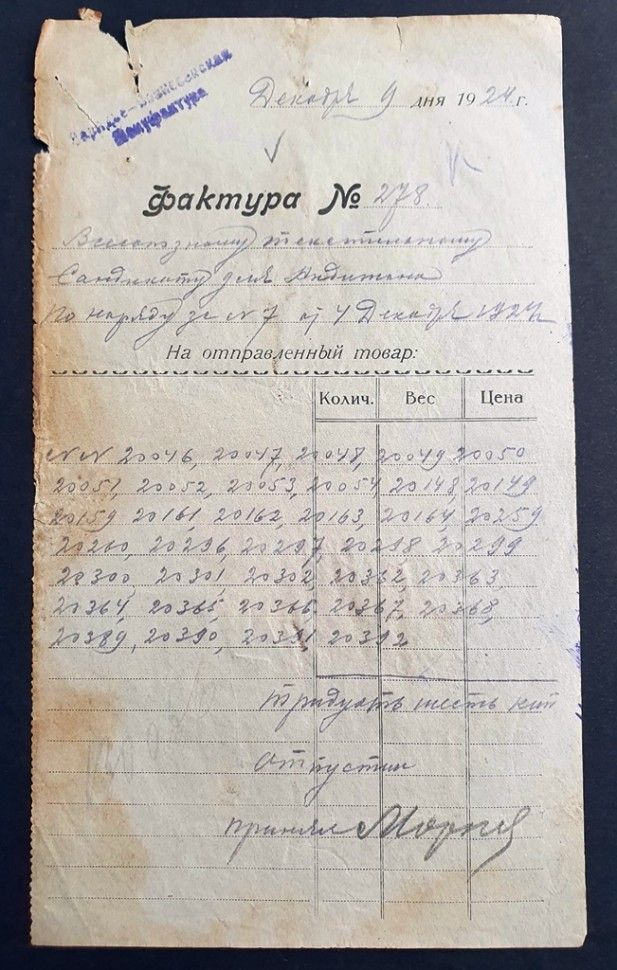 Мануфактура
Декабря 9 дня 1924 г.
Фактура № 278.
Всесоюзному текстильному
Синдикату для Андижана
По наряду за N 7 от 4 Декабря 1924 г.
На отправленный товар:
Колич. Вес Цена
NN 20046, 20047, 20048, 20049 20050
20051, 20052, 20053, 20054 20148, 20149
20159 20161 20162, 20163, 20164, 20259
20260, 20296, 20297, 20298, 20299
20300, 20301, 20302, 20362, 20363,
20364, 20365, 20366, 20367, 20368,
20389, 20390, 20391 20392
Тридцать шесть кип
Отпустил
Принял